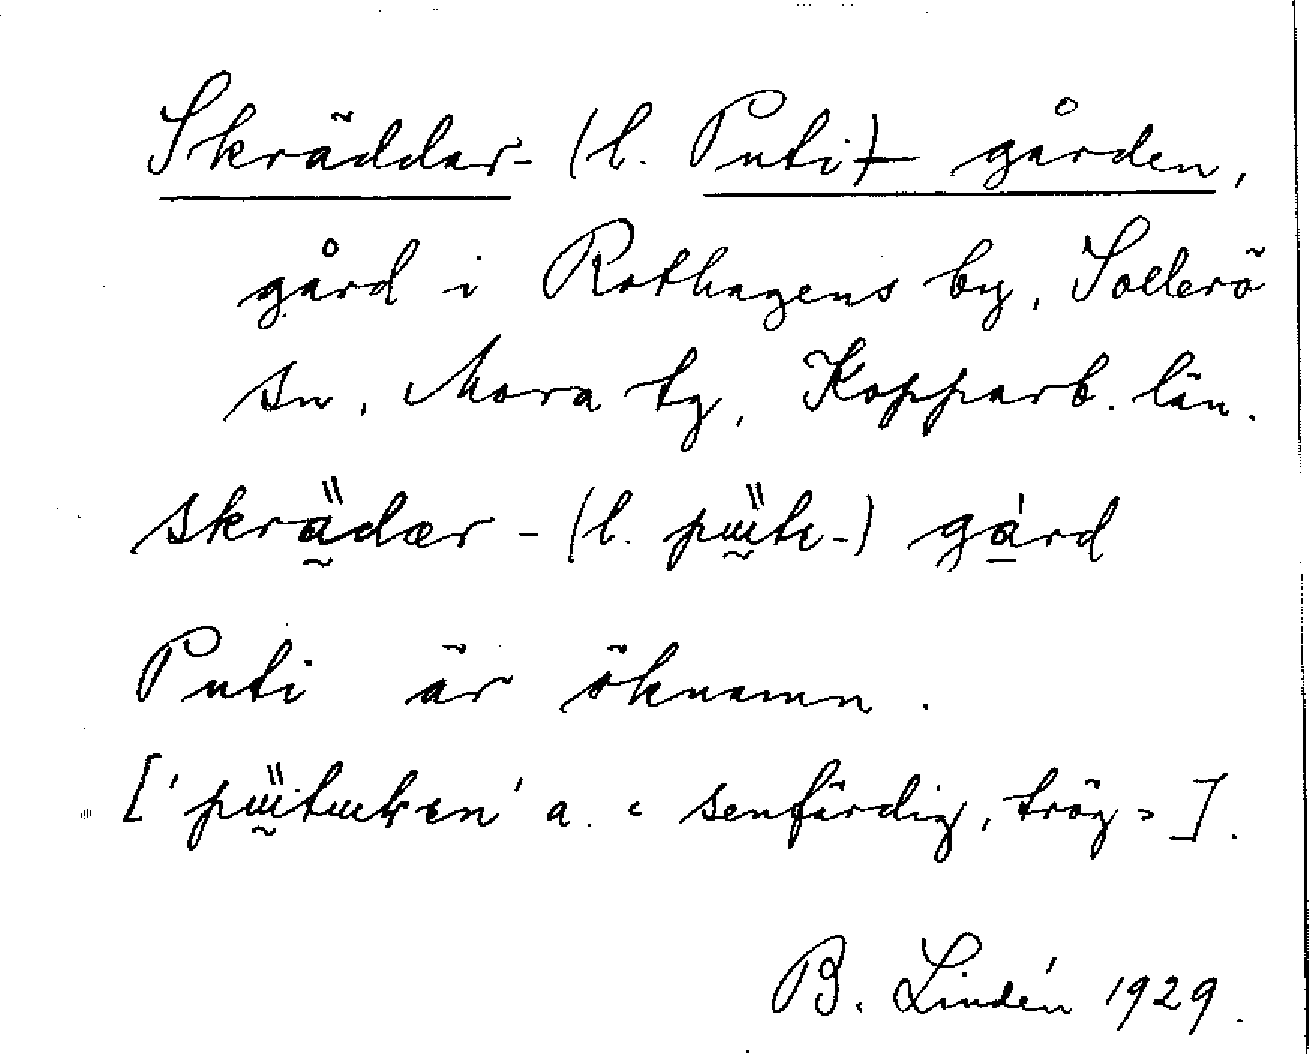 Skräddar- (l. Puti) gården,
gård i Rothagens by, Sollerö
sn, Mora tg, Kopparb. län.
skrädær- (l. pɯti-) gárd
Puti är öknamn.
['pɯtɯken' a. < senfärdig, trög > ].
B. Lindén 1929.